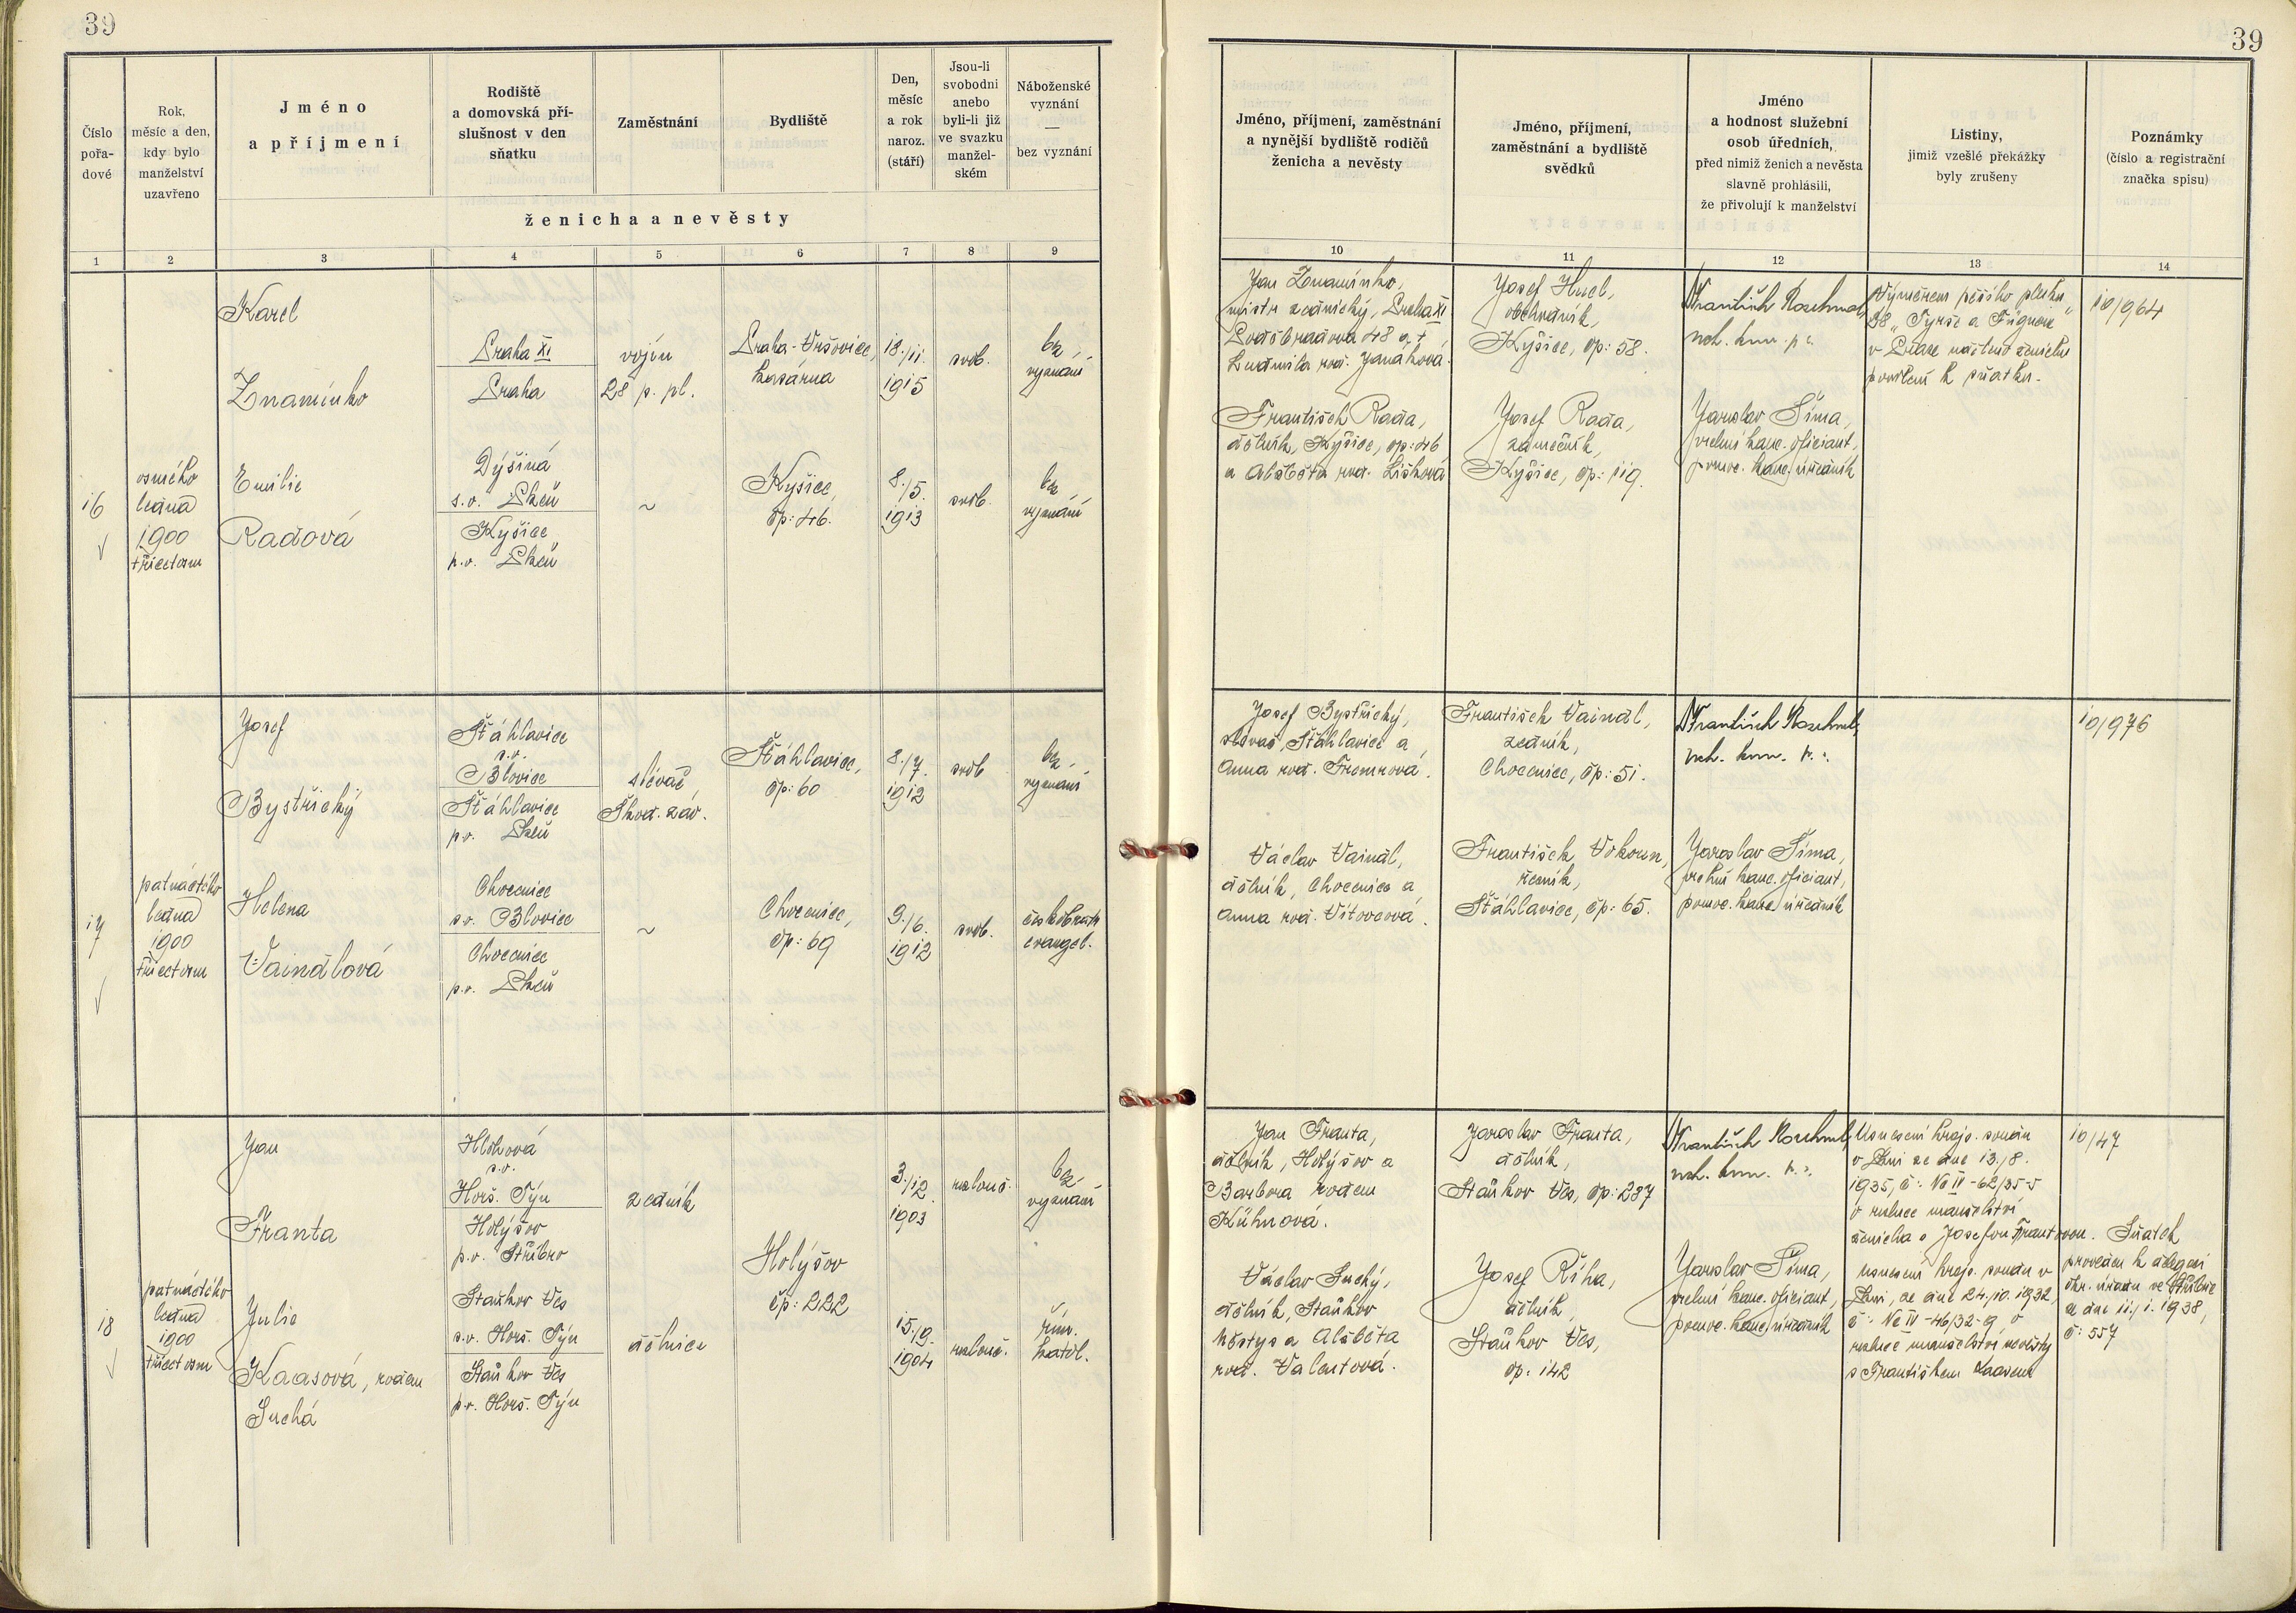 39
Číslo
pořa-
dové
Rok,
měsíc a den,
kdy bylo
manželství
uzavřeno
Jméno
a příjmení
Rodiště
a domovská pří-
slušnost v den
sňatku
Zaměstnání
Bydliště
Den,
měsíc
a rok
naroz.
(stáří)
Jsou-li
svobodni
anebo
byli-li již
ve svazku
manžel-
ském
Náboženské
vyznání
—
bez vyznání
ženicha a nevěsty
1 2 3 4 5 6 7 8 9
16
osmého
ledna
1900
třicetosm
Karel
Znamínko
Praha XI
Praha
vojín
28 p. pl.
Praha-Vršovice,
kasárna
18./11.
1915
svob.
bez
vyznání
Emilie
Radová
Dýšiná
s.o. Plzeň
Kyšice
p.o. Plzeň
~
Kyšice,
čp: 46.
8./5.
1913
svob.
bez
vyznání
17
patnáctého
ledna
1900
třicetosm
Josef
Bystřický
Šťáhlavice
s.o.
Blovice
Šťáhlavice
p.o. Plzeň
slévač
Škod. záv.
Šťáhlavice,
čp: 60
8./7.
1912
svob
bez
vyznání
Helena
Vaindlová
Chocenice
s.o. Blovice
Chocenice
p.o. Plzeň
~
Chocenice,
čp: 69
9./6.
1912
svob.
českobratr.
evangel.
18
patnáctého
ledna
1900
třicetosm
Jan
Franta
s.o.
Horš. Týn
Holýšov
p.o. Stříbro
zedník
Holýšov
čp: 222
3./12.
1903
rozlouč.
bez
vyznání
Julie
Kaasová, rodem
Suchá
Staňkov Ves
s.o. Horš. Týn
Staňkov Ves
p.o. Horš. Týn
dělnice
15./9.
1904
rozlouč.
řím.
katol.
39
Jméno, příjmení, zaměstnání
a nynější bydliště rodičů
ženicha a nevěsty
Jméno, příjmení,
zaměstnání a bydliště
svědků
Jméno
a hodnost služební
osob úředních,
před nimiž ženich a nevěsta
slavně prohlásili,
že přivolují k manželství
Listiny,
jimiž vzešlé překážky
byly zrušeny
Poznámky
(číslo a registrační
značka spisu)
10 11 12 13 14
Jan Znamínko,
mistr zednický, Praha XI
Poděbradova 48 a †
Ludmila roz. Janáková.
Josef
obchodník,
Kyšice, čp: 58.
František
rch. kom.
Výměrem pěšího pluku
28 „Tyrše a Fügnera"
v Praze uděleno ženichu
povolení k sňatku.
10/964
František Rada,
dělník, Kyšice, čp: 46
a Alžběta roz. Lišková
Josef Rada,
zámečník,
Kyšice, čp: 119.
Jaroslav Šíma,
vrchní kanc. oficiant,
pomoc. kanc. úředník
Josef Bystřický,
slévač, Šťáhlavice a
Anna roz.
František Vaindl,
zedník,
Chocenice, čp: 51.
František
rch. kom.
10/976
Václav Vaindl,
dělník, Chocenice a
Anna roz. Vítovcová.
František Vokoun,
řezník,
Šťáhlavice, čp: 65.
Jaroslav Šíma,
vrchní kanc. oficiant,
pomoc. kanc. úředník
Jan Franta,
dělník, Holýšov a
Barbora rodem
Kühnová.
Jaroslav Franta,
dělník,
Staňkov Ves, čp: 287
František
rch. kom.
Usnesení krajs. soudu
v Plzni ze dne 13./8.
1935, č: Nc IV-62/35-5
o rozluce manželství
ženicha s Josefou Frantovou.
10/47
Václav Suchý,
dělník, Staňkov
městys a Alžběta
roz. Valentová.
Josef Říha,
dělník,
Staňkov Ves,
čp: 142
Jaroslav Šíma,
vrchní kanc. oficiant,
pomoc. kanc. úředník
Usnesení krajs. soudu v
Plzni, ze dne 24./10. 1932,
č: Nc IV-46/32-9 o
rozluce manželství nevěsty
s Františkem Kaasem
Sňatek
proveden k delegaci
okr. úřadu ve Stříbře
ze dne 11./1. 1938,
č: 557